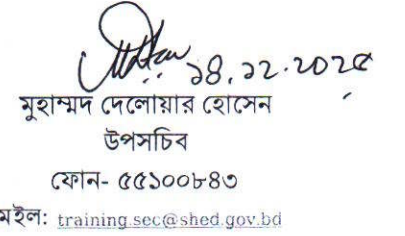 ১৪.১২.২০২৫
মুহাম্মদ দেলোয়ার হোসেন
উপসচিব
ফোন- ৫৫১০০৮৪৩
মইল: training.sec@shed.gov.bd